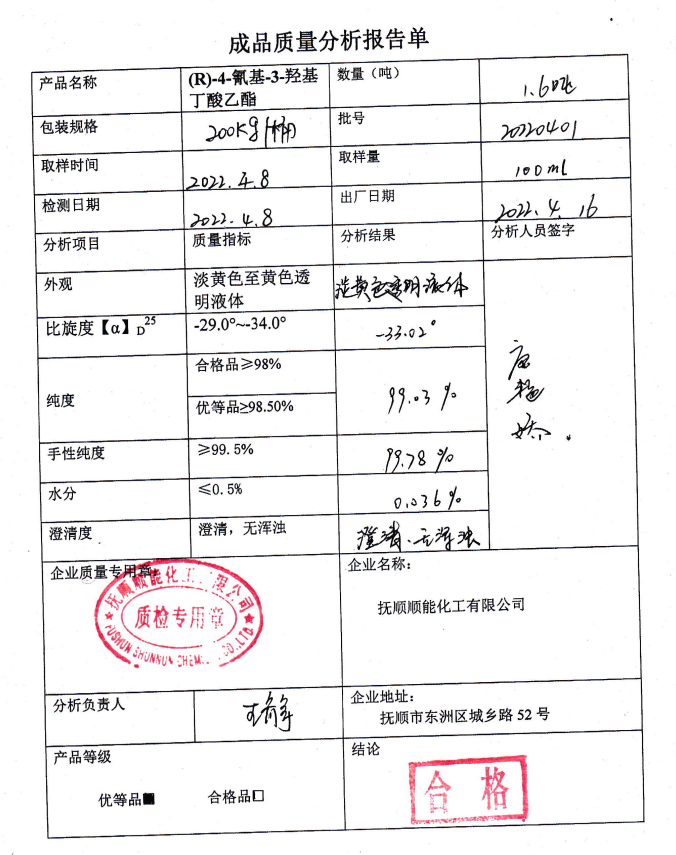 成品质量分析报告单
产品名称
(R)-4-氰基-3-羟基
丁酸乙酯
数量（吨）
1.60吨
包装规格
200Kg/桶
批号
20220401
取样时间
2022.4.8
取样量
100ml
检测日期
2022.4.8
出厂日期
2022.4.16
分析项目
质量指标
分析结果
分析人员签字
外观
淡黄色至黄色透
明液体
淡黄色透明液体
比旋度【α】D25
-29.0°~-34.0°
-33.02°
纯度
合格品≥98%
优等品≥98.50%
99.03%
手性纯度
≥99.5%
99.78%
水分
≤0.5%
0.036%
澄清度
澄清，无浑浊
澄清、无浑浊
企业质量专用章
抚顺顺能化工有限公司
质检专用章
FUSHUN SHUNNUN CHEMI CO.,LTD
企业名称：
抚顺顺能化工有限公司
分析负责人
企业地址：
抚顺市东洲区城乡路 52 号
产品等级
优等品■
合格品□
结论
合格